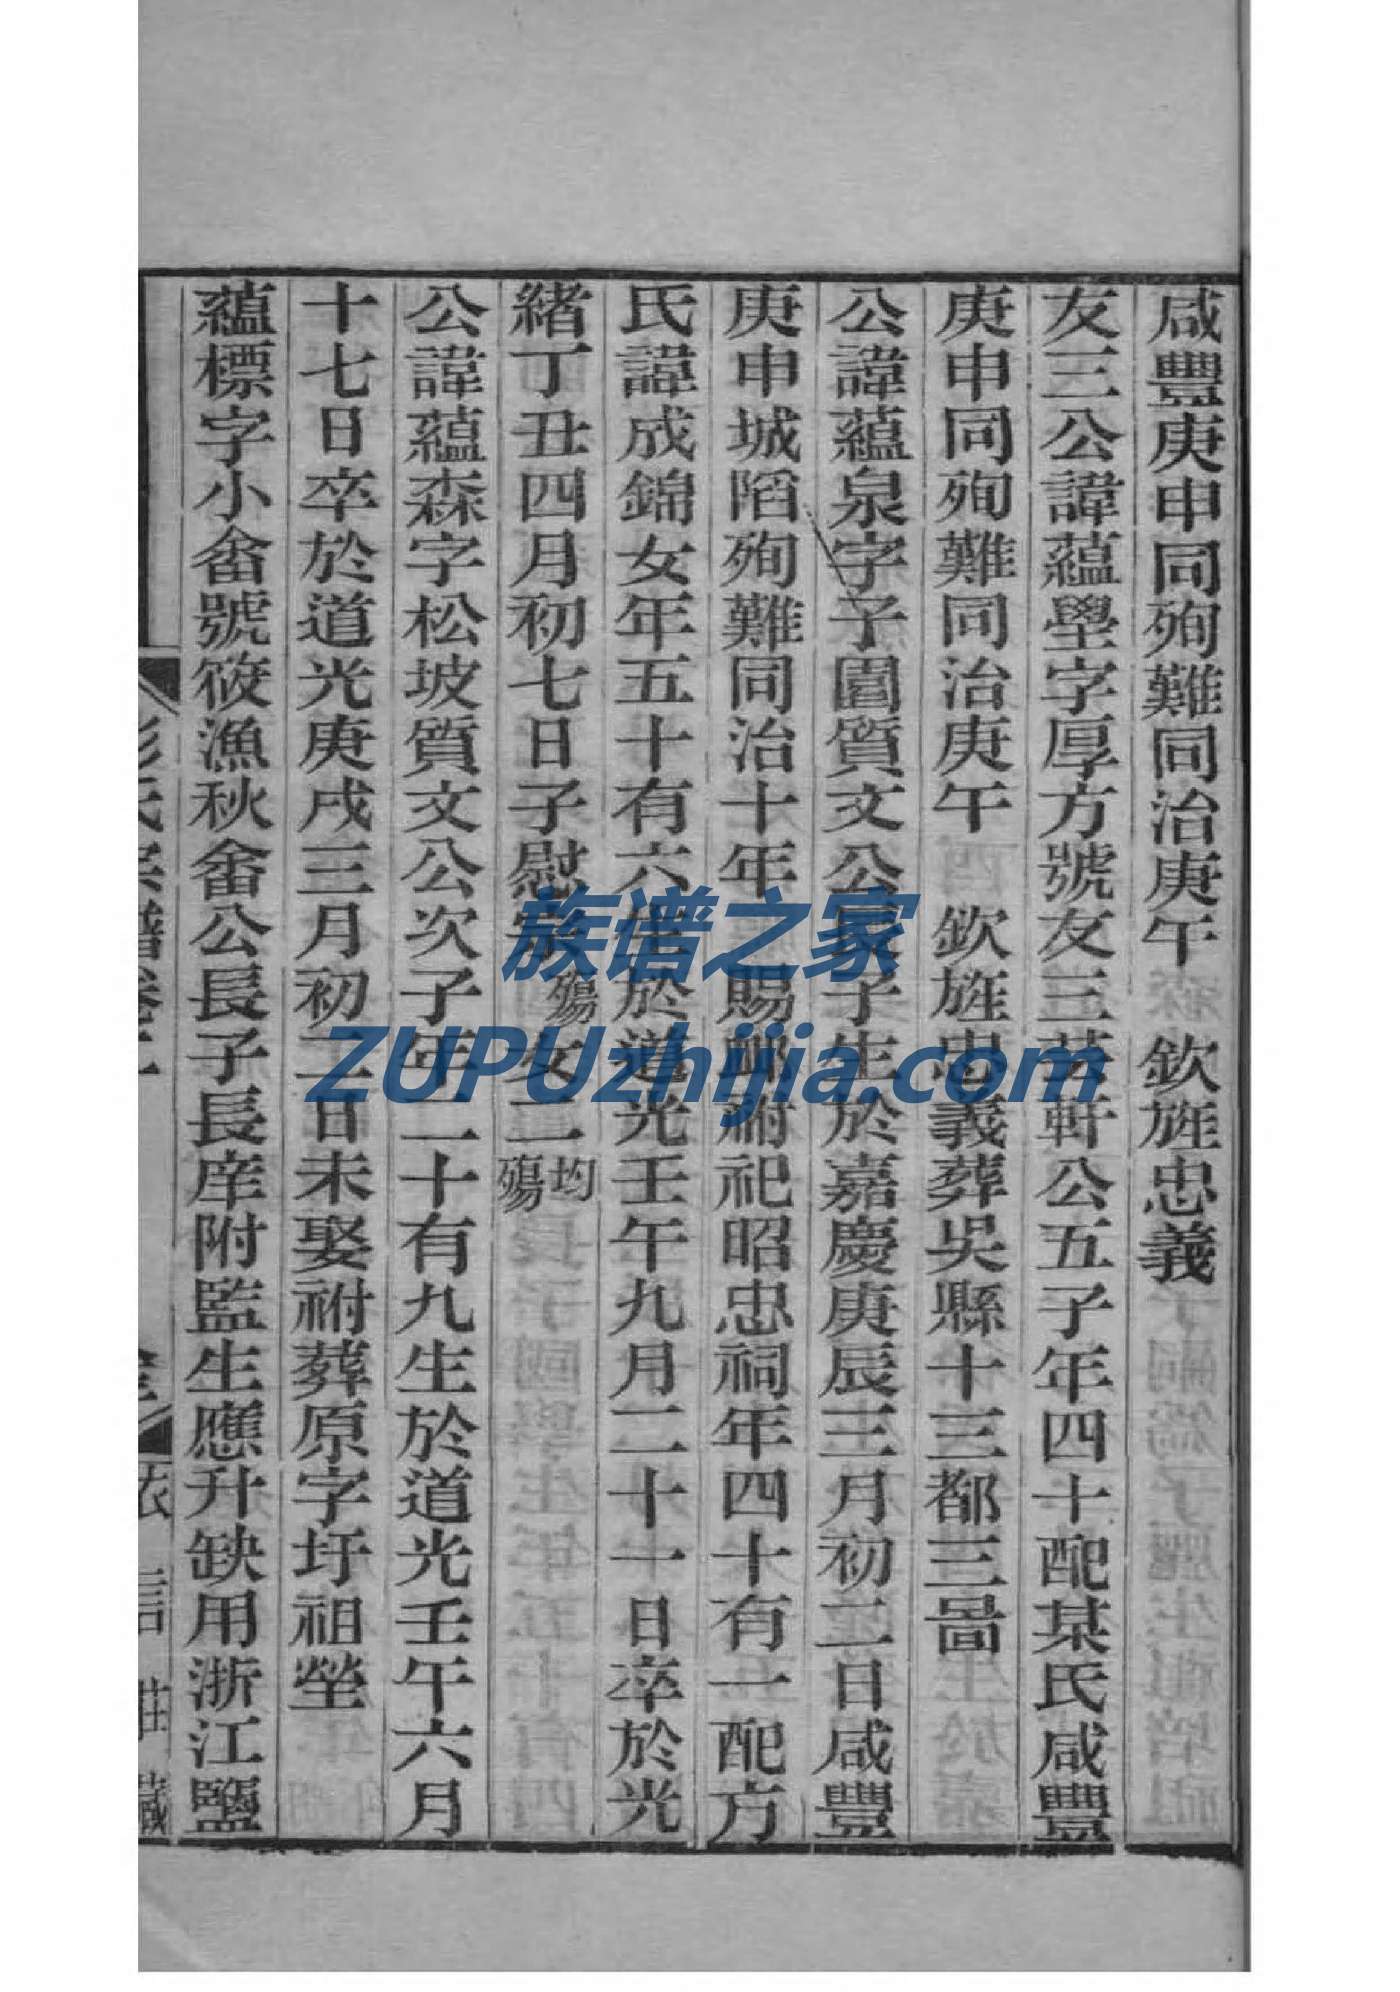 咸豐庚申同殉難同治庚午　欽旌忠義
友三公諱蘊壆字厚方號友三芸軒公五子年四十配某氏咸豐
庚申同殉難同治庚午　欽旌忠義葬吳縣十三都三啚
公諱蘊泉字子園質文公長子生於嘉慶庚辰三月初二日咸豐
庚申城陷殉難同治十年　賜卹祔祀昭忠祠年四十有一配方
氏諱成錦女年五十有六生於道光壬午九月二十一日卒於光
緒丁丑四月初七日子慰殤女二均殤
公諱蘊森字松坡質文公次子年二十有九生於道光壬午六月
十七日卒於道光庚戌三月初二日未娶祔葬原字圩祖塋
蘊標字小畬號筱漁秋畬公長子長庠附監生應升缺用浙江鹽
彭氏宗譜卷
莊藏
族谱之家
ZUPUzhijia.com